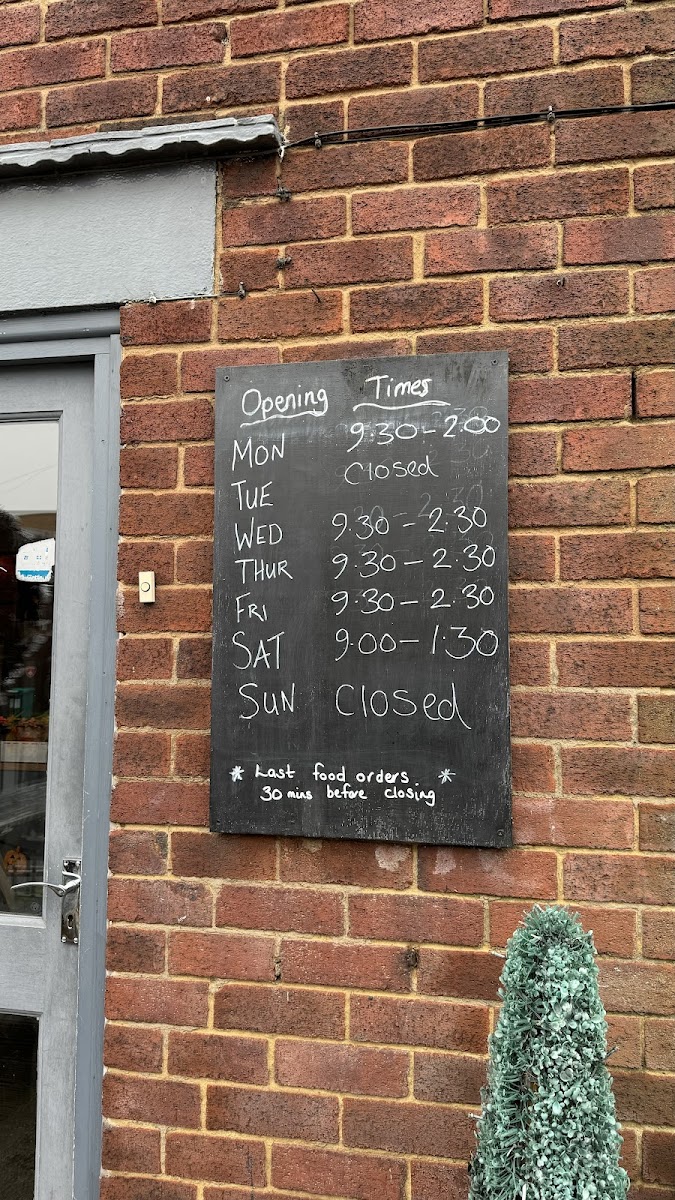 Opening Times
MON 9.30 - 2.00
TUE Closed
WED 9.30 - 2.30
THUR 9.30 - 2.30
FRI 9.30 - 2.30
SAT 9.00 - 1.30
SUN Closed
* Last food orders *
30 mins before closing